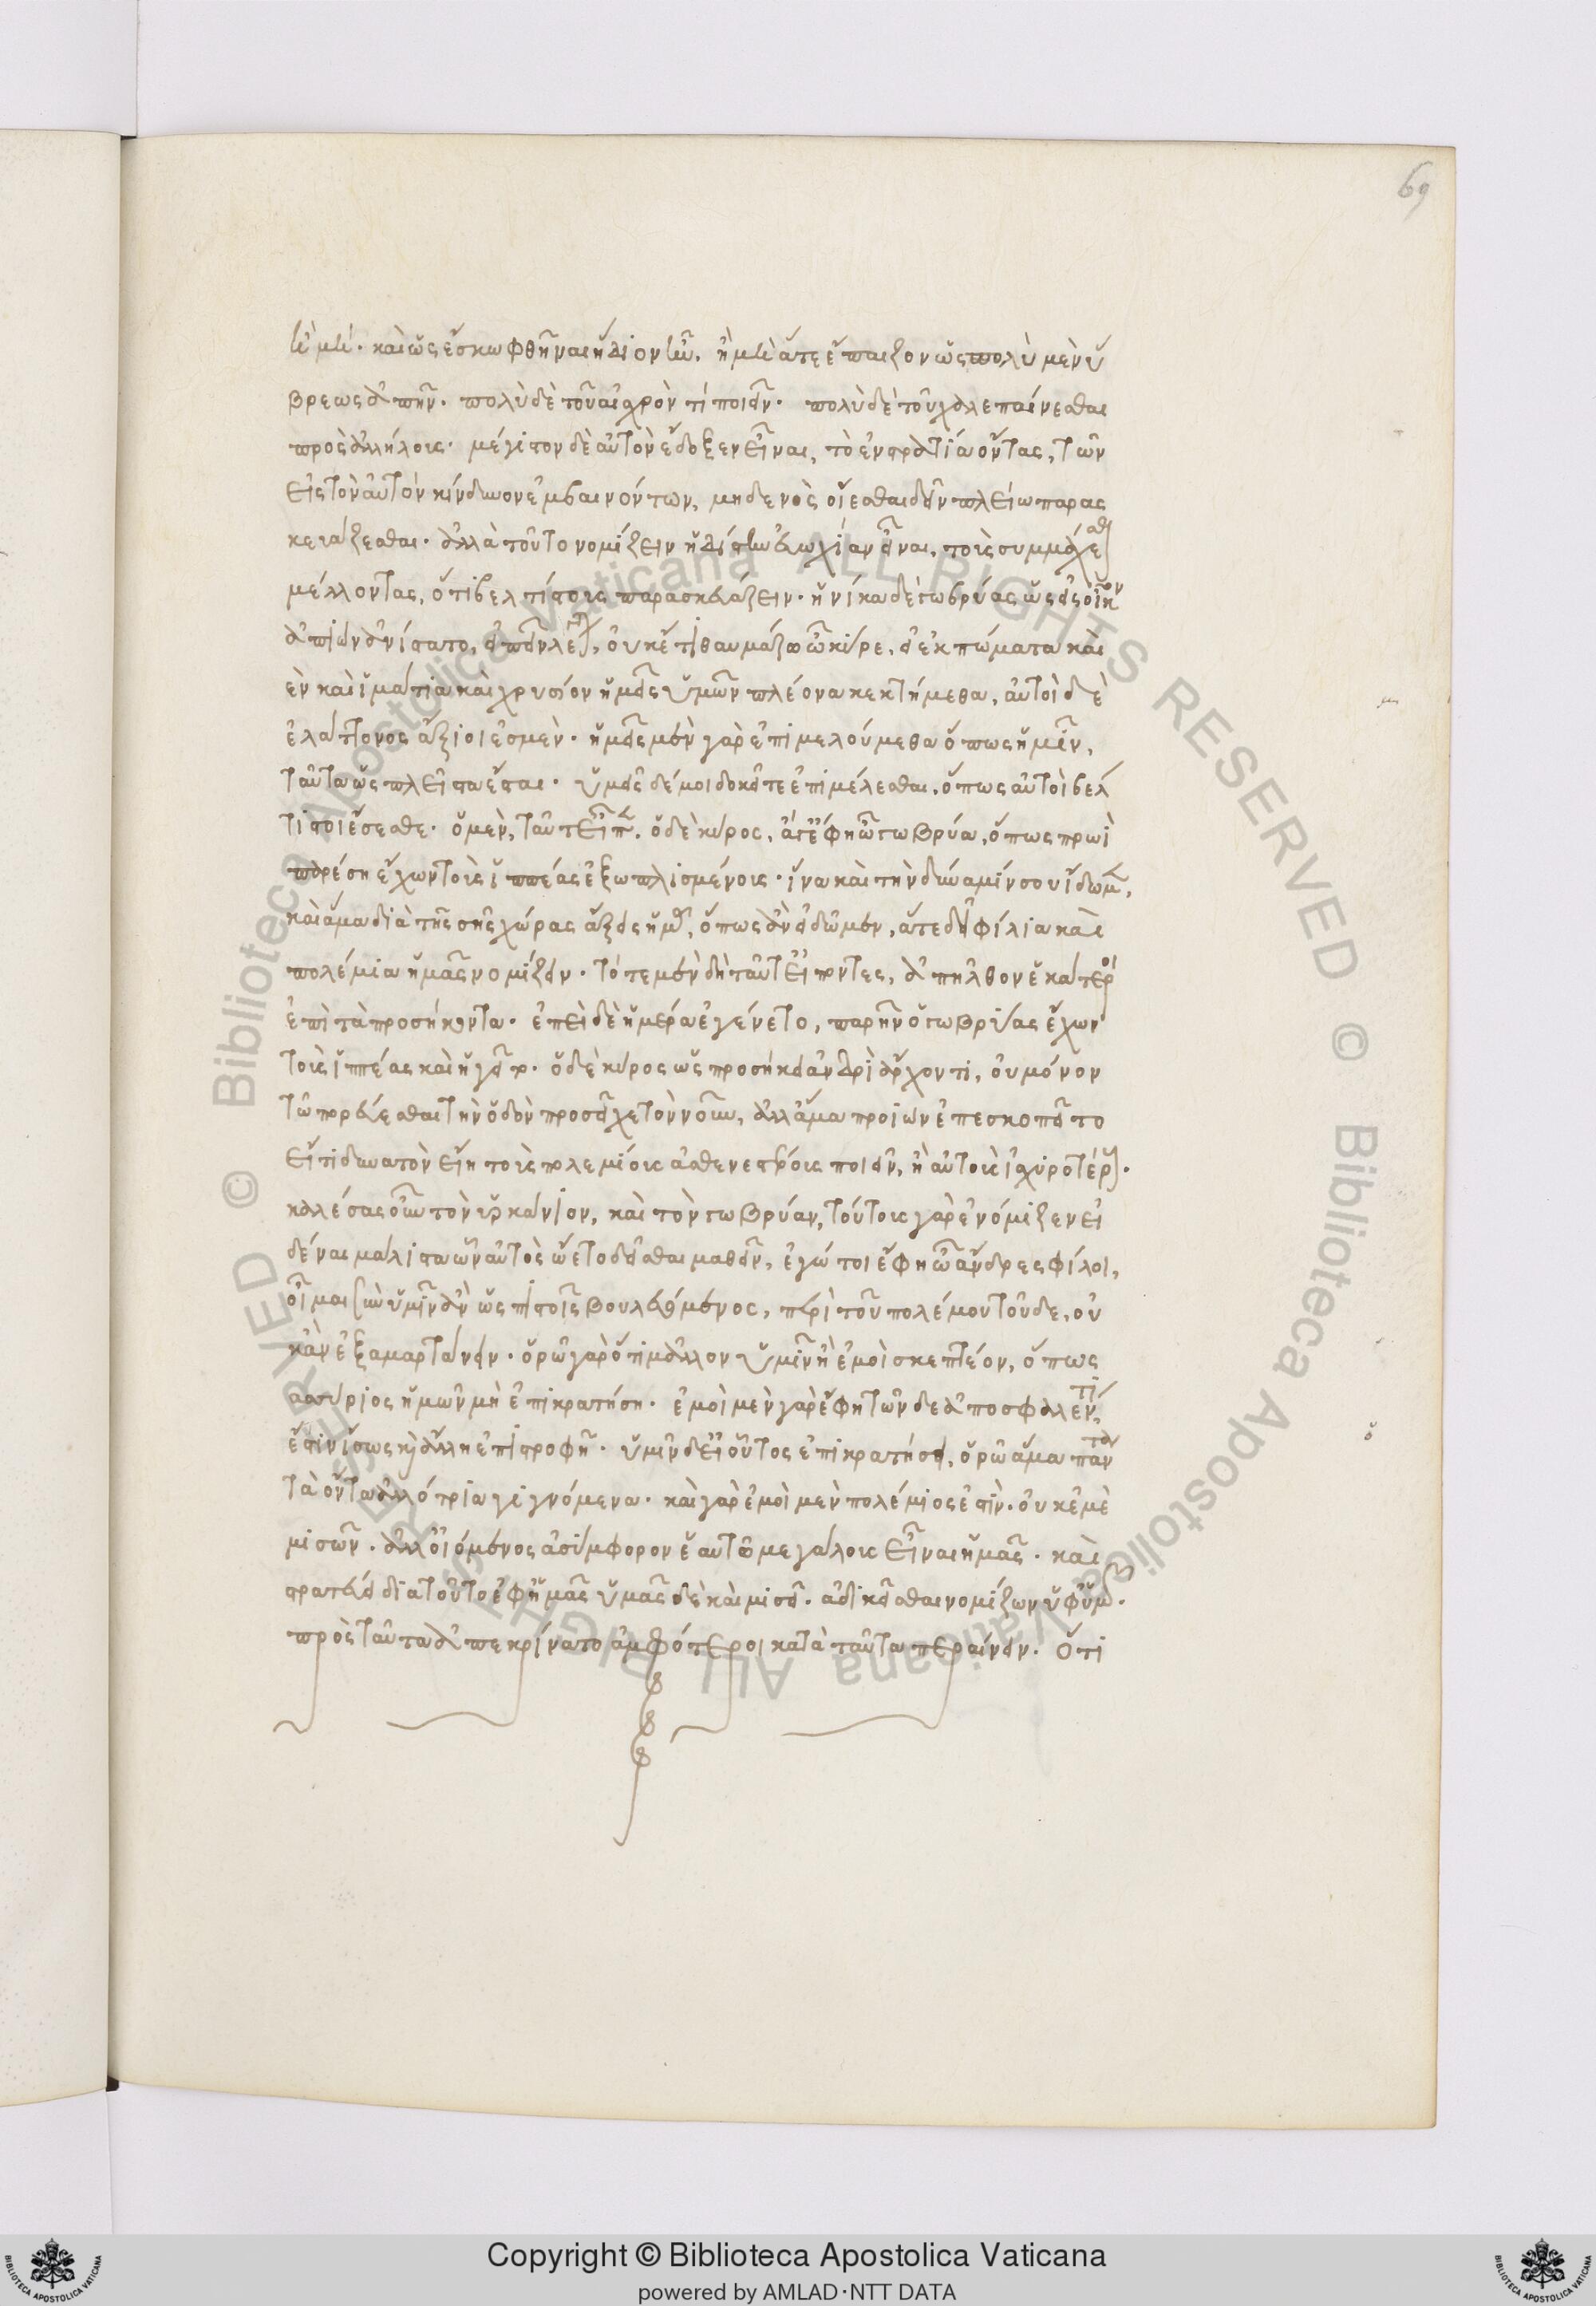 69
ἢ μὴ· καὶ ὡς ἐσκώφθησαν ἥδιον ἦν, ἢ μὴ ἅτε ἔπαιζον ὡς πολὺ μὲν ὕ
βρεως ἀπῆν· πολὺ δὲ τοῦ αἰσχρόν τι ποιεῖν· πολὺ δὲ τοῦ χαλεπαίνεσθαι
πρὸς ἀλλήλους· μέγιστον δὲ αὐτὸν ἔδοξεν εἶναι, τὸ ἐν στρατία ὄντας, τῶν
εἰς τὸν αὐτὸν κίνδυνον ἐμβαινόντων, μηδενὸς οἴεσθαι δεῖν πλείω παρασ
κευάζεσθαι· ἀλλὰ τοῦτο νομίζειν ἡδίστην εὐωχίαν εἶναι, τοὺς συμμάχεσθαι
μέλλοντας, ὅτι βελτίστους παρασκευάζειν· ἡνίκα δὲ γωβρύας ὡς εἰς οἶκον
ἀπιὼν ἀνίστατο, εἰπεῖν λέγεται, οὐκέτι θαυμάζω ὦ κύρε, εἰ ἐκπώματα καὶ
ἐν καὶ ἱμάτια καὶ χρυσίον ἡμεῖς ὑμῶν πλέονα κεκτήμεθα, αὐτοὶ δὲ
ἐλάττονος ἄξιοι ἐσμέν· ἡμεῖς μὲν γὰρ ἐπιμελούμεθα ὅπως ἡμῖν,
ταῦτα ὡς πλεῖστα ἔσται· ὑμεῖς δέ μοι δοκεῖτε ἐπιμέλεσθαι, ὅπως αὐτοὶ βέλ
τιστοι ἔσεσθε· ὁ μὲν, ταῦτ εἶπεν. ὁ δὲ κύρος, ἄγε ἔφη ὦ γωβρύα, ὅπως πρωὶ
παρέση ἔχων τοὺς ἱππέας ἐξωπλισμένους· ἵνα καὶ τὴν δύναμίν σου ἴδωμεν,
καὶ ἅμα διὰ τῆς σῆς χώρας ἄξεις ἡμᾶς, ὅπως ἂν εἰδῶμεν, ἅτε δεῖ φίλια καὶ
πολέμια ἡμᾶς νομίζειν· τότε μὲν δὴ ταῦτ εἰπόντες, ἀπῆλθον ἑκάτεροι
ἐπὶ τὰ προσήκοντα· ἐπεὶ δὲ ἡμέρα ἐγένετο, παρῆν ὁ γωβρύας ἔχων
τοὺς ἱππέας καὶ ἡγεῖτο· ὁ δὲ κύρος ὡς προσήκει ἀνδρὶ ἄρχοντι, οὐ μόνον
τῶ πορεύεσθαι τὴν ὁδὸν προσεῖχε τὸν νοῦν, ἀλλ ἅμα προιὼν ἐπεσκοπεῖτο
εἴ τι δυνατὸν εἴη τοὺς πολεμίους ἀσθενεστέρους ποιεῖν, ἢ αὐτοὺς ἰσχυροτέρους.
καλέσας οὖν τὸν ὑρκάνιον, καὶ τὸν γωβρύαν, τούτους γὰρ ἐνόμιζεν εἰ
δέναι μάλιστα ὧν αὐτὸς ᾤετο δεῖσθαι μαθεῖν, ἐγώ τοι ἔφη ὦ ἄνδρες φίλοι,
οἶμαι σὺν ὑμῖν ἂν ὡς πιστοῖς βουλευόμενος, περὶ τοῦ πολέμου τοῦδε, οὐ
κ ἂν ἐξαμαρτάνειν· ὁρῶ γὰρ ὅτι μᾶλλον ὑμῖν ἢ ἐμοὶ σκεπτέον, ὅπως
ασσύριος ἡμῶν μὴ ἐπικρατήση· ἐμοὶ μὲν γὰρ ἔφη τῶνδε ἀποσφαλέντι,
ἔστιν ἴσως καὶ ἄλλη ἐπιστροφή· ὑμῖν δὲ εἰ οὗτος ἐπικρατήσει, ὁρῶ ἅμα πάντα
τὰ ὄντα ἀλλότρια γιγνόμενα· καὶ γὰρ ἐμοὶ μὲν πολέμιος ἐστίν· οὐκ ἐμὲ
μισῶν· ἀλλ οἰόμενος ἀσύμφορον ἑαυτῶ μεγάλους εἶναι ἡμᾶς· καὶ
στρατεύει διὰ τοῦτο ἐφ ἡμᾶς ὑμᾶς δὲ καὶ μισεῖ· ἀδικεῖσθαι νομίζων ὑφ ὑμῶν·
πρὸς ταῦτα ἀπεκρίνατο ἀμφότεροι κατὰ ταῦτα περαίνειν· ὅτι
Copyright © Biblioteca Apostolica Vaticana
powered by AMLAD·NTT DATA